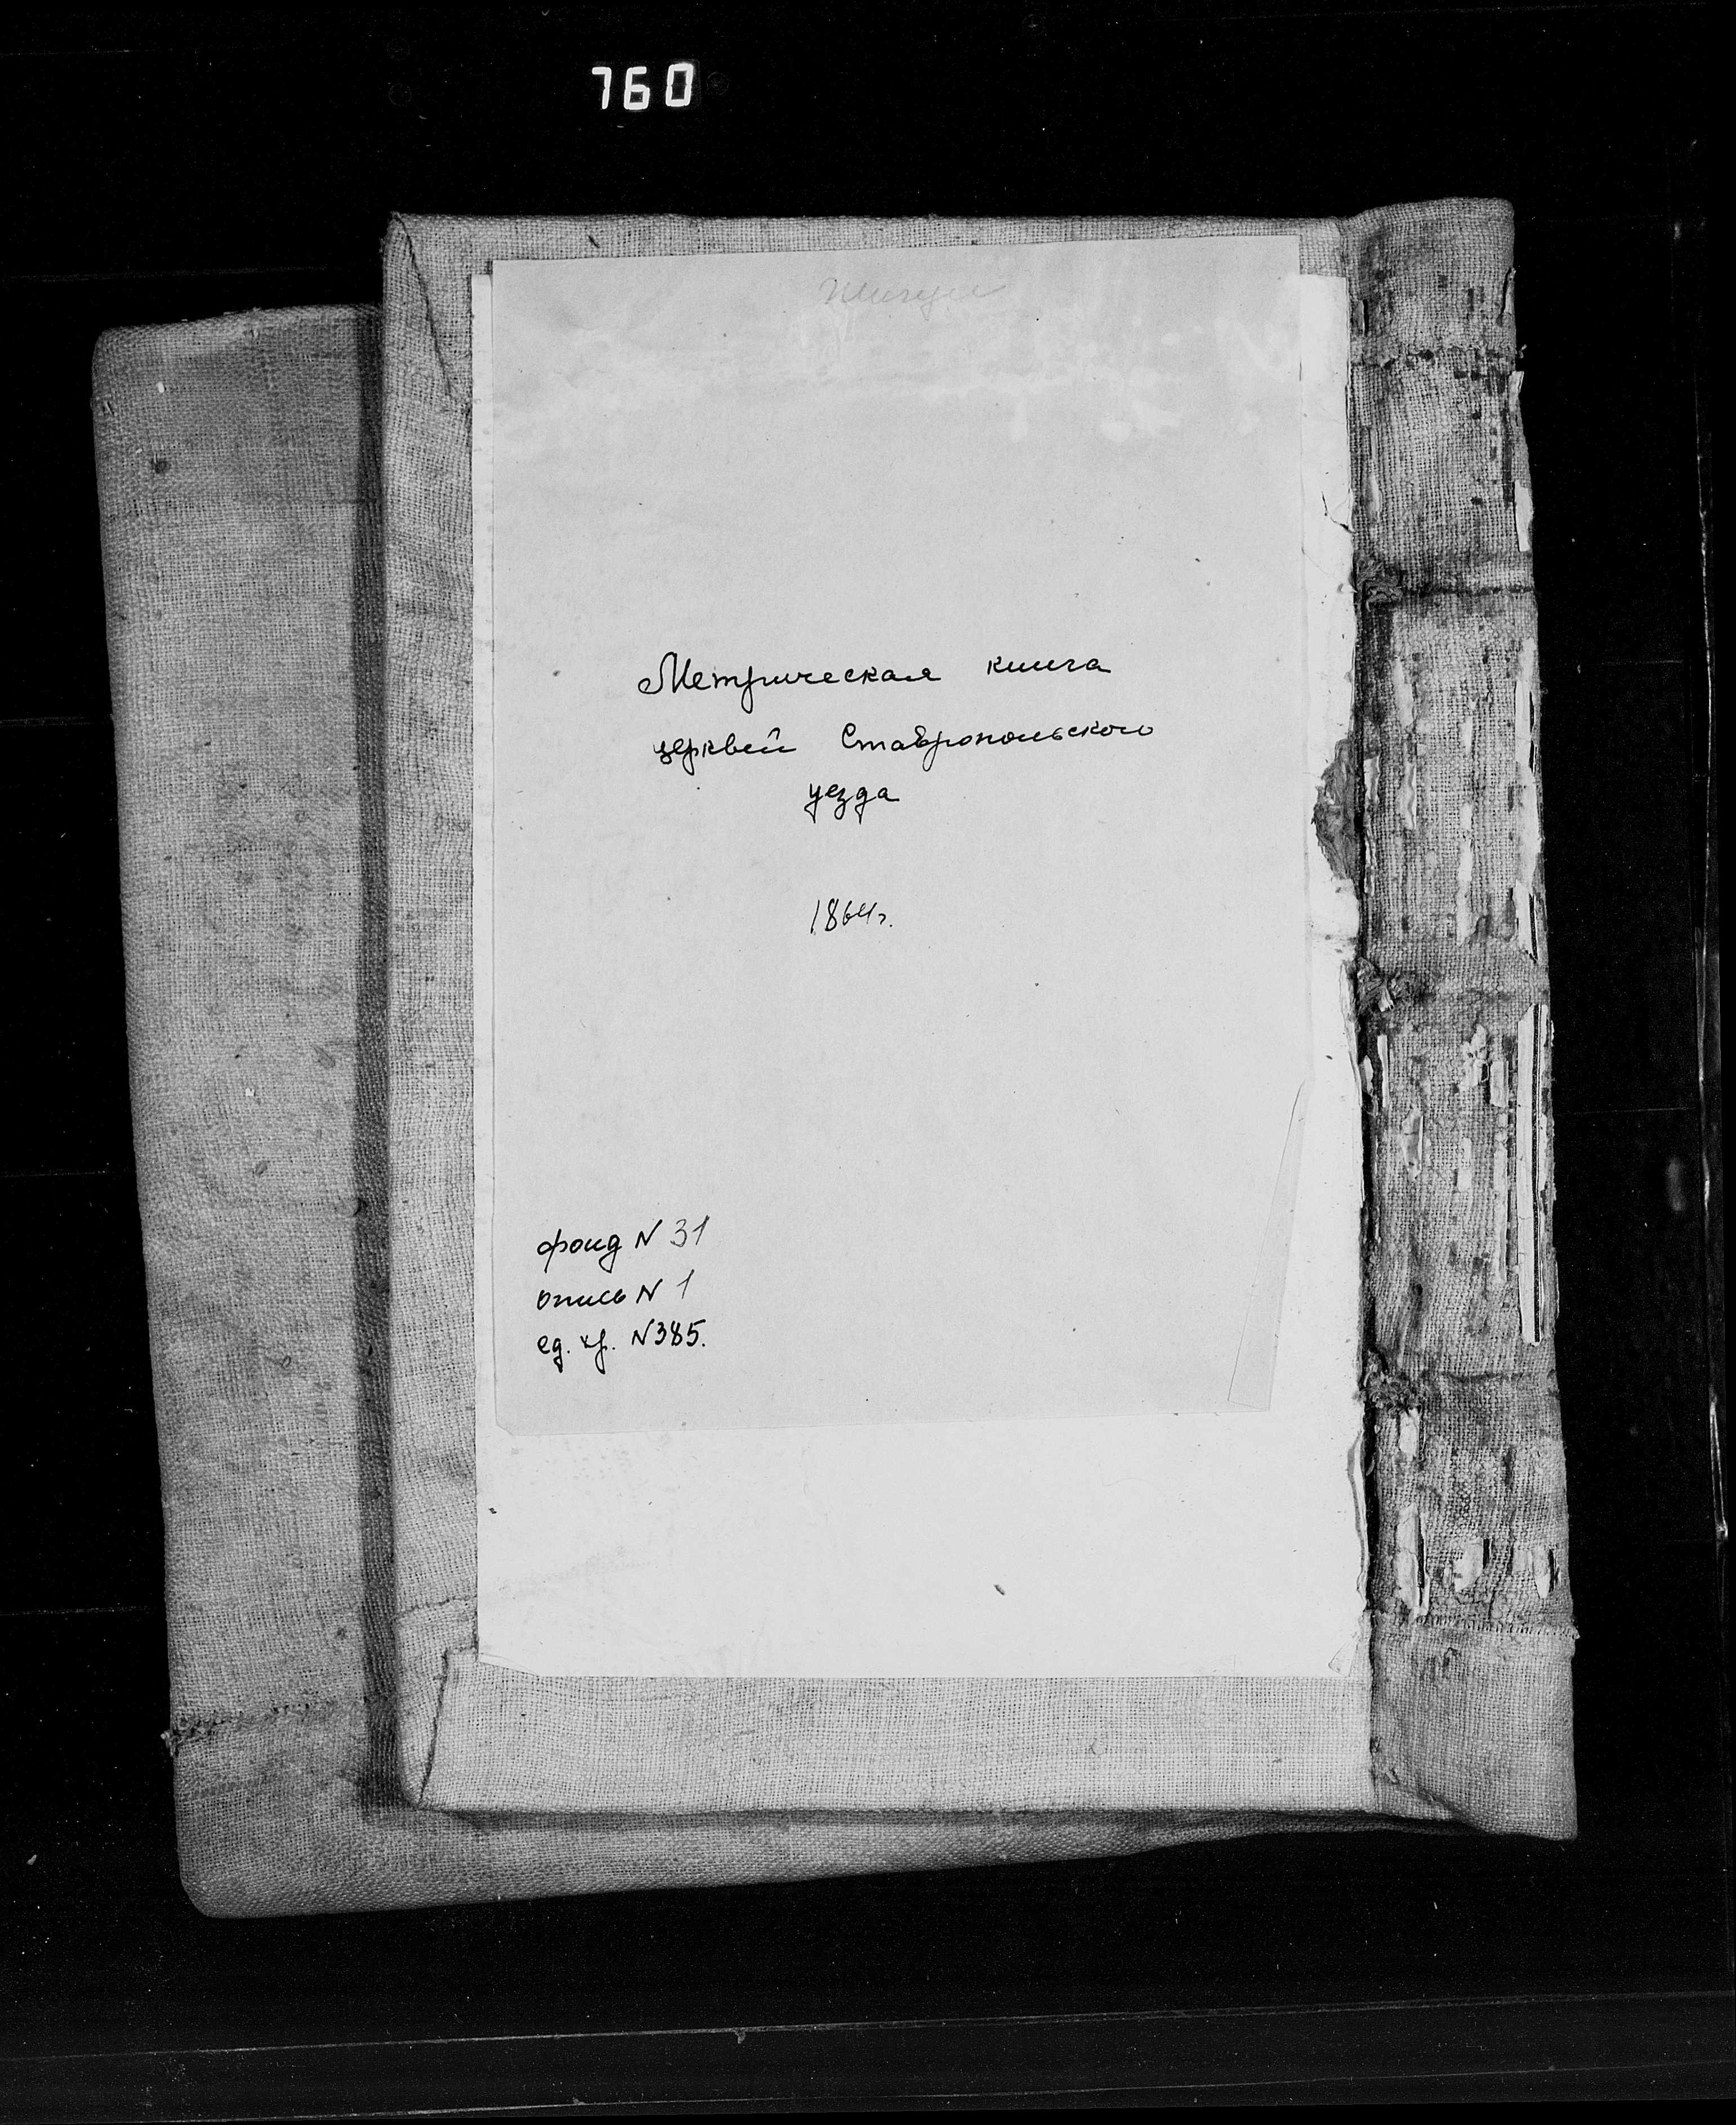 760
Метрическая книга
церквей Ставропольского
уезда
1864г.
фонд N 31
опись N 1
ед. хр. N385.